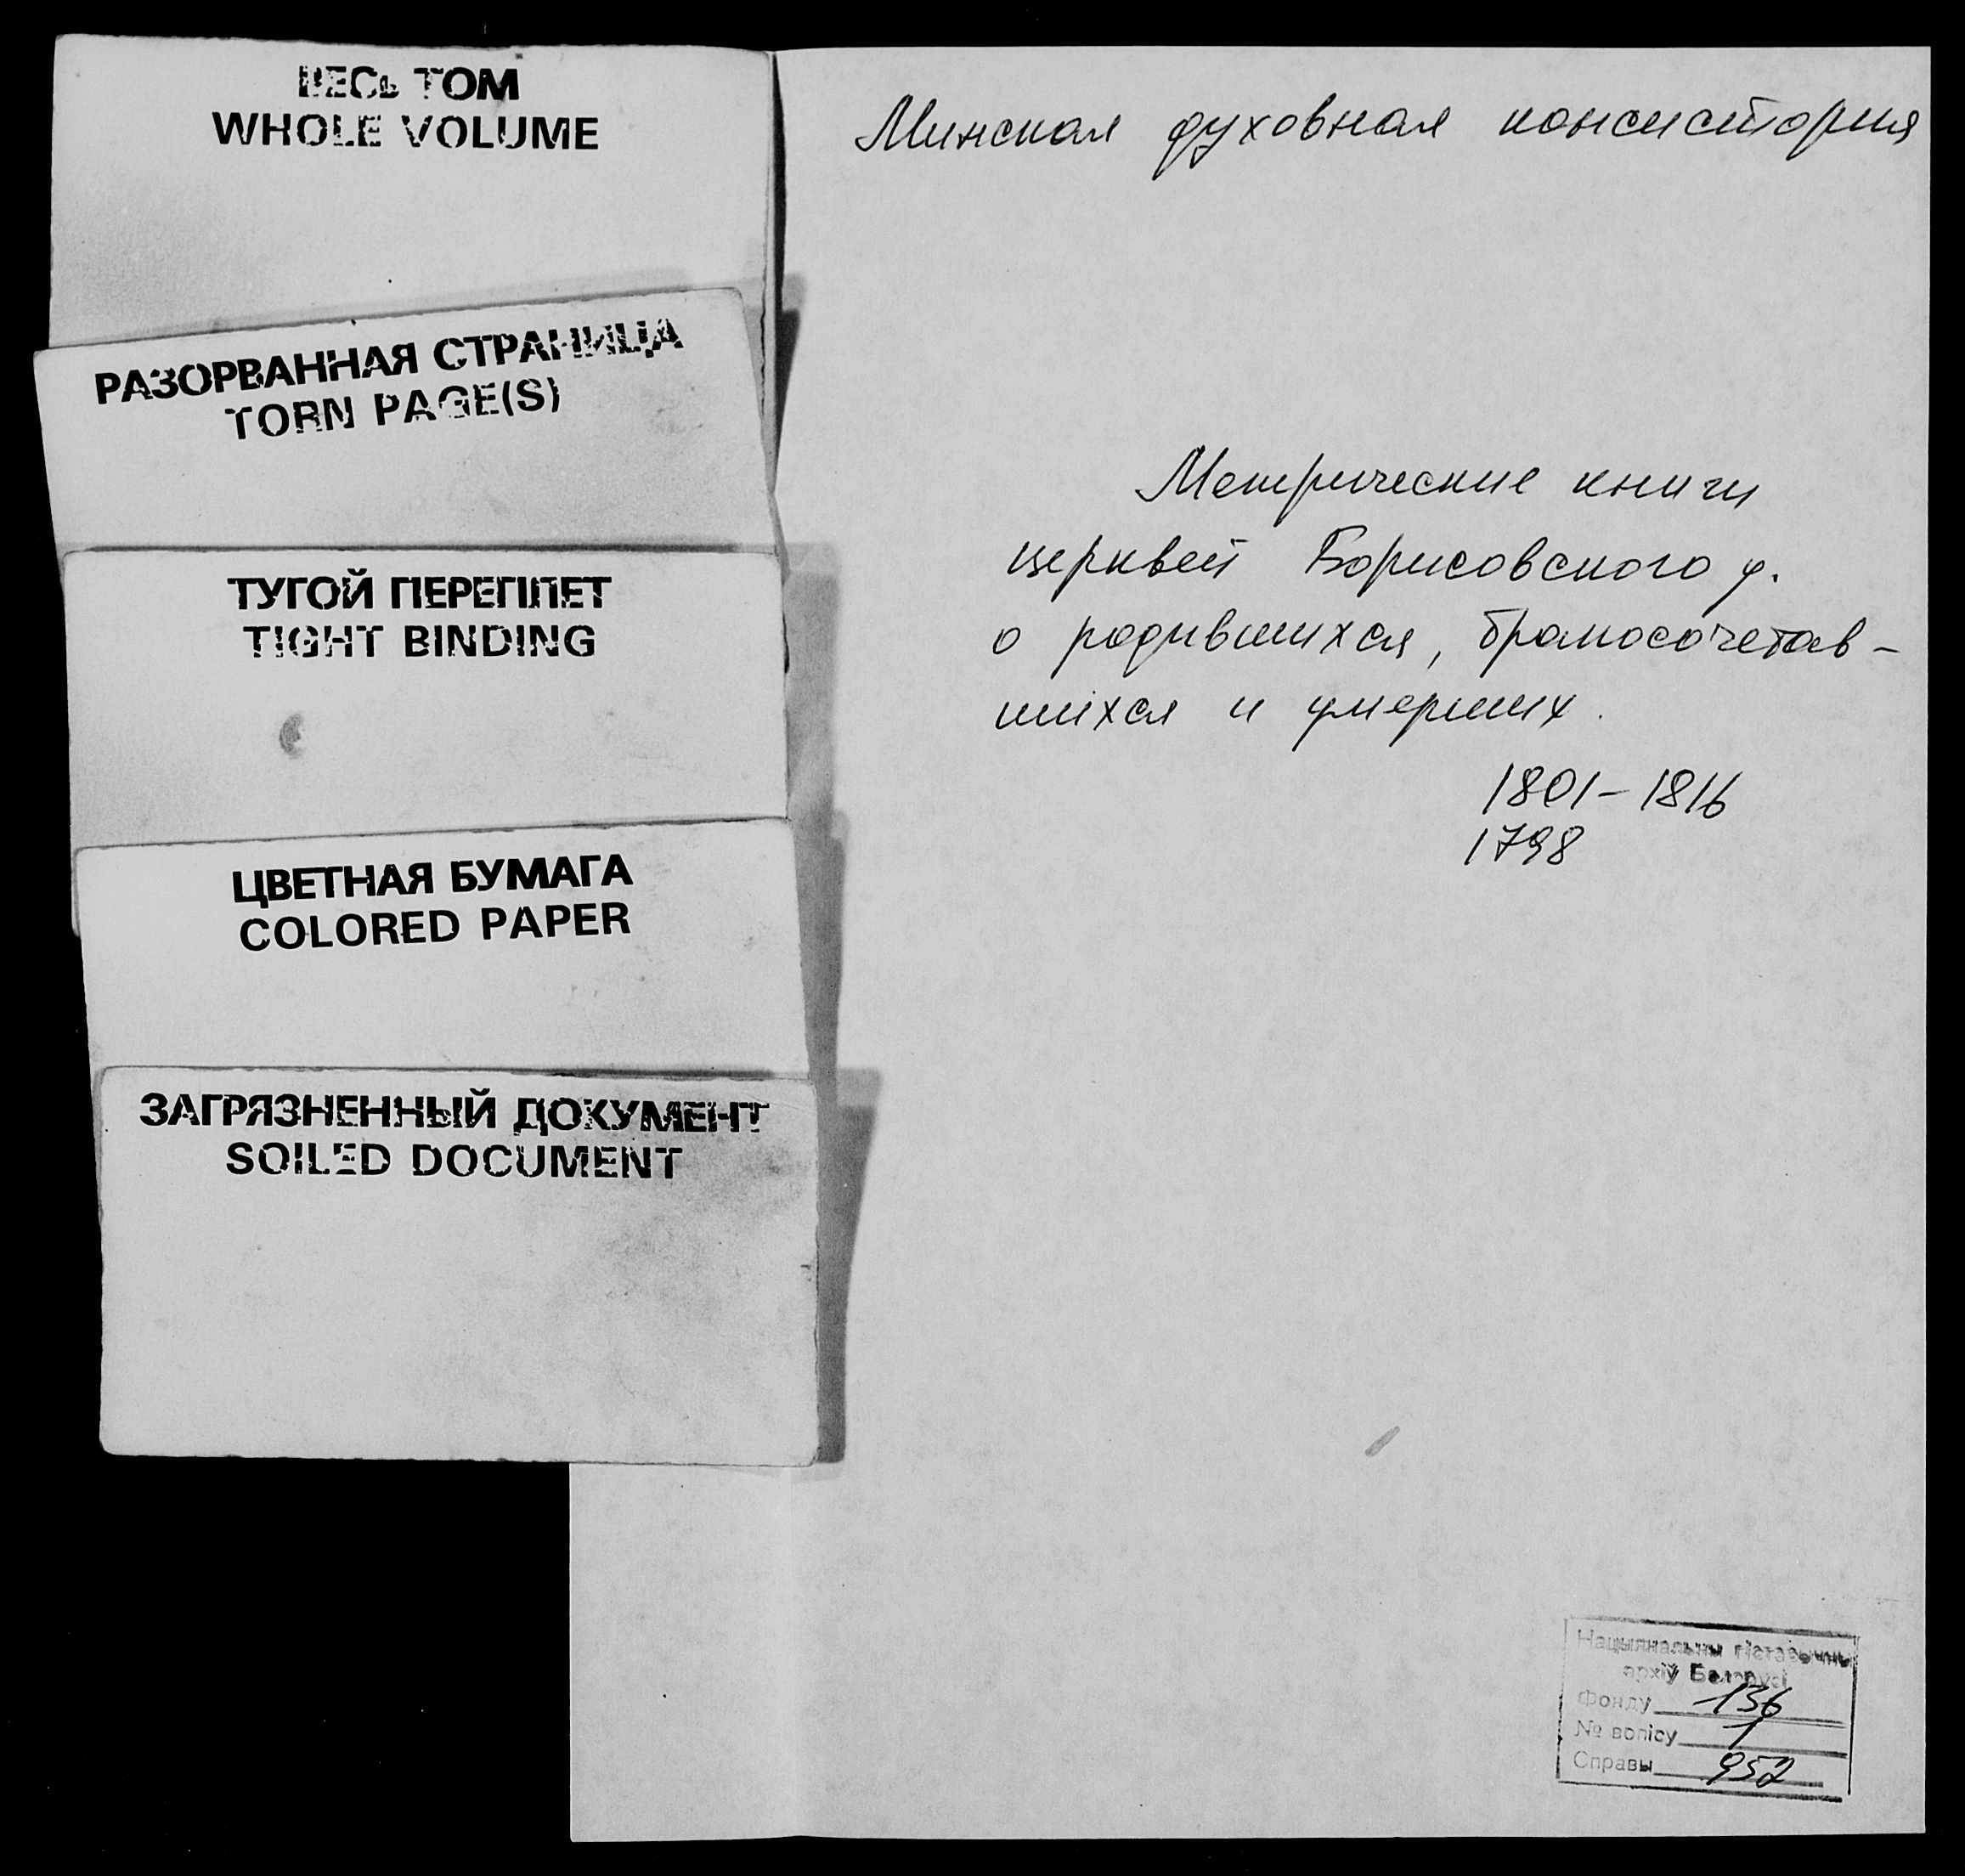 ВЕСЬ ТОМ
WHOLE VOLUME
РАЗОРВАННАЯ СТРАНИЦА
TORN PAGE(S)
ТУГОЙ ПЕРЕПЛЕТ
TIGHT BINDING
ЦВЕТНАЯ БУМАГА
COLORED PAPER
ЗАГРЯЗНЕННЫЙ ДОКУМЕНТ
SOILED DOCUMENT
Минская духовная консистория
Метрические книги
церквей Борисовского у.
о родившихся, бракосочетав-
шихся и умерших.
1801-1816
1798
Нацыянальны гістарычны
архіў Беларусі
Фонду 136
№ вопісу 1
Справы 952